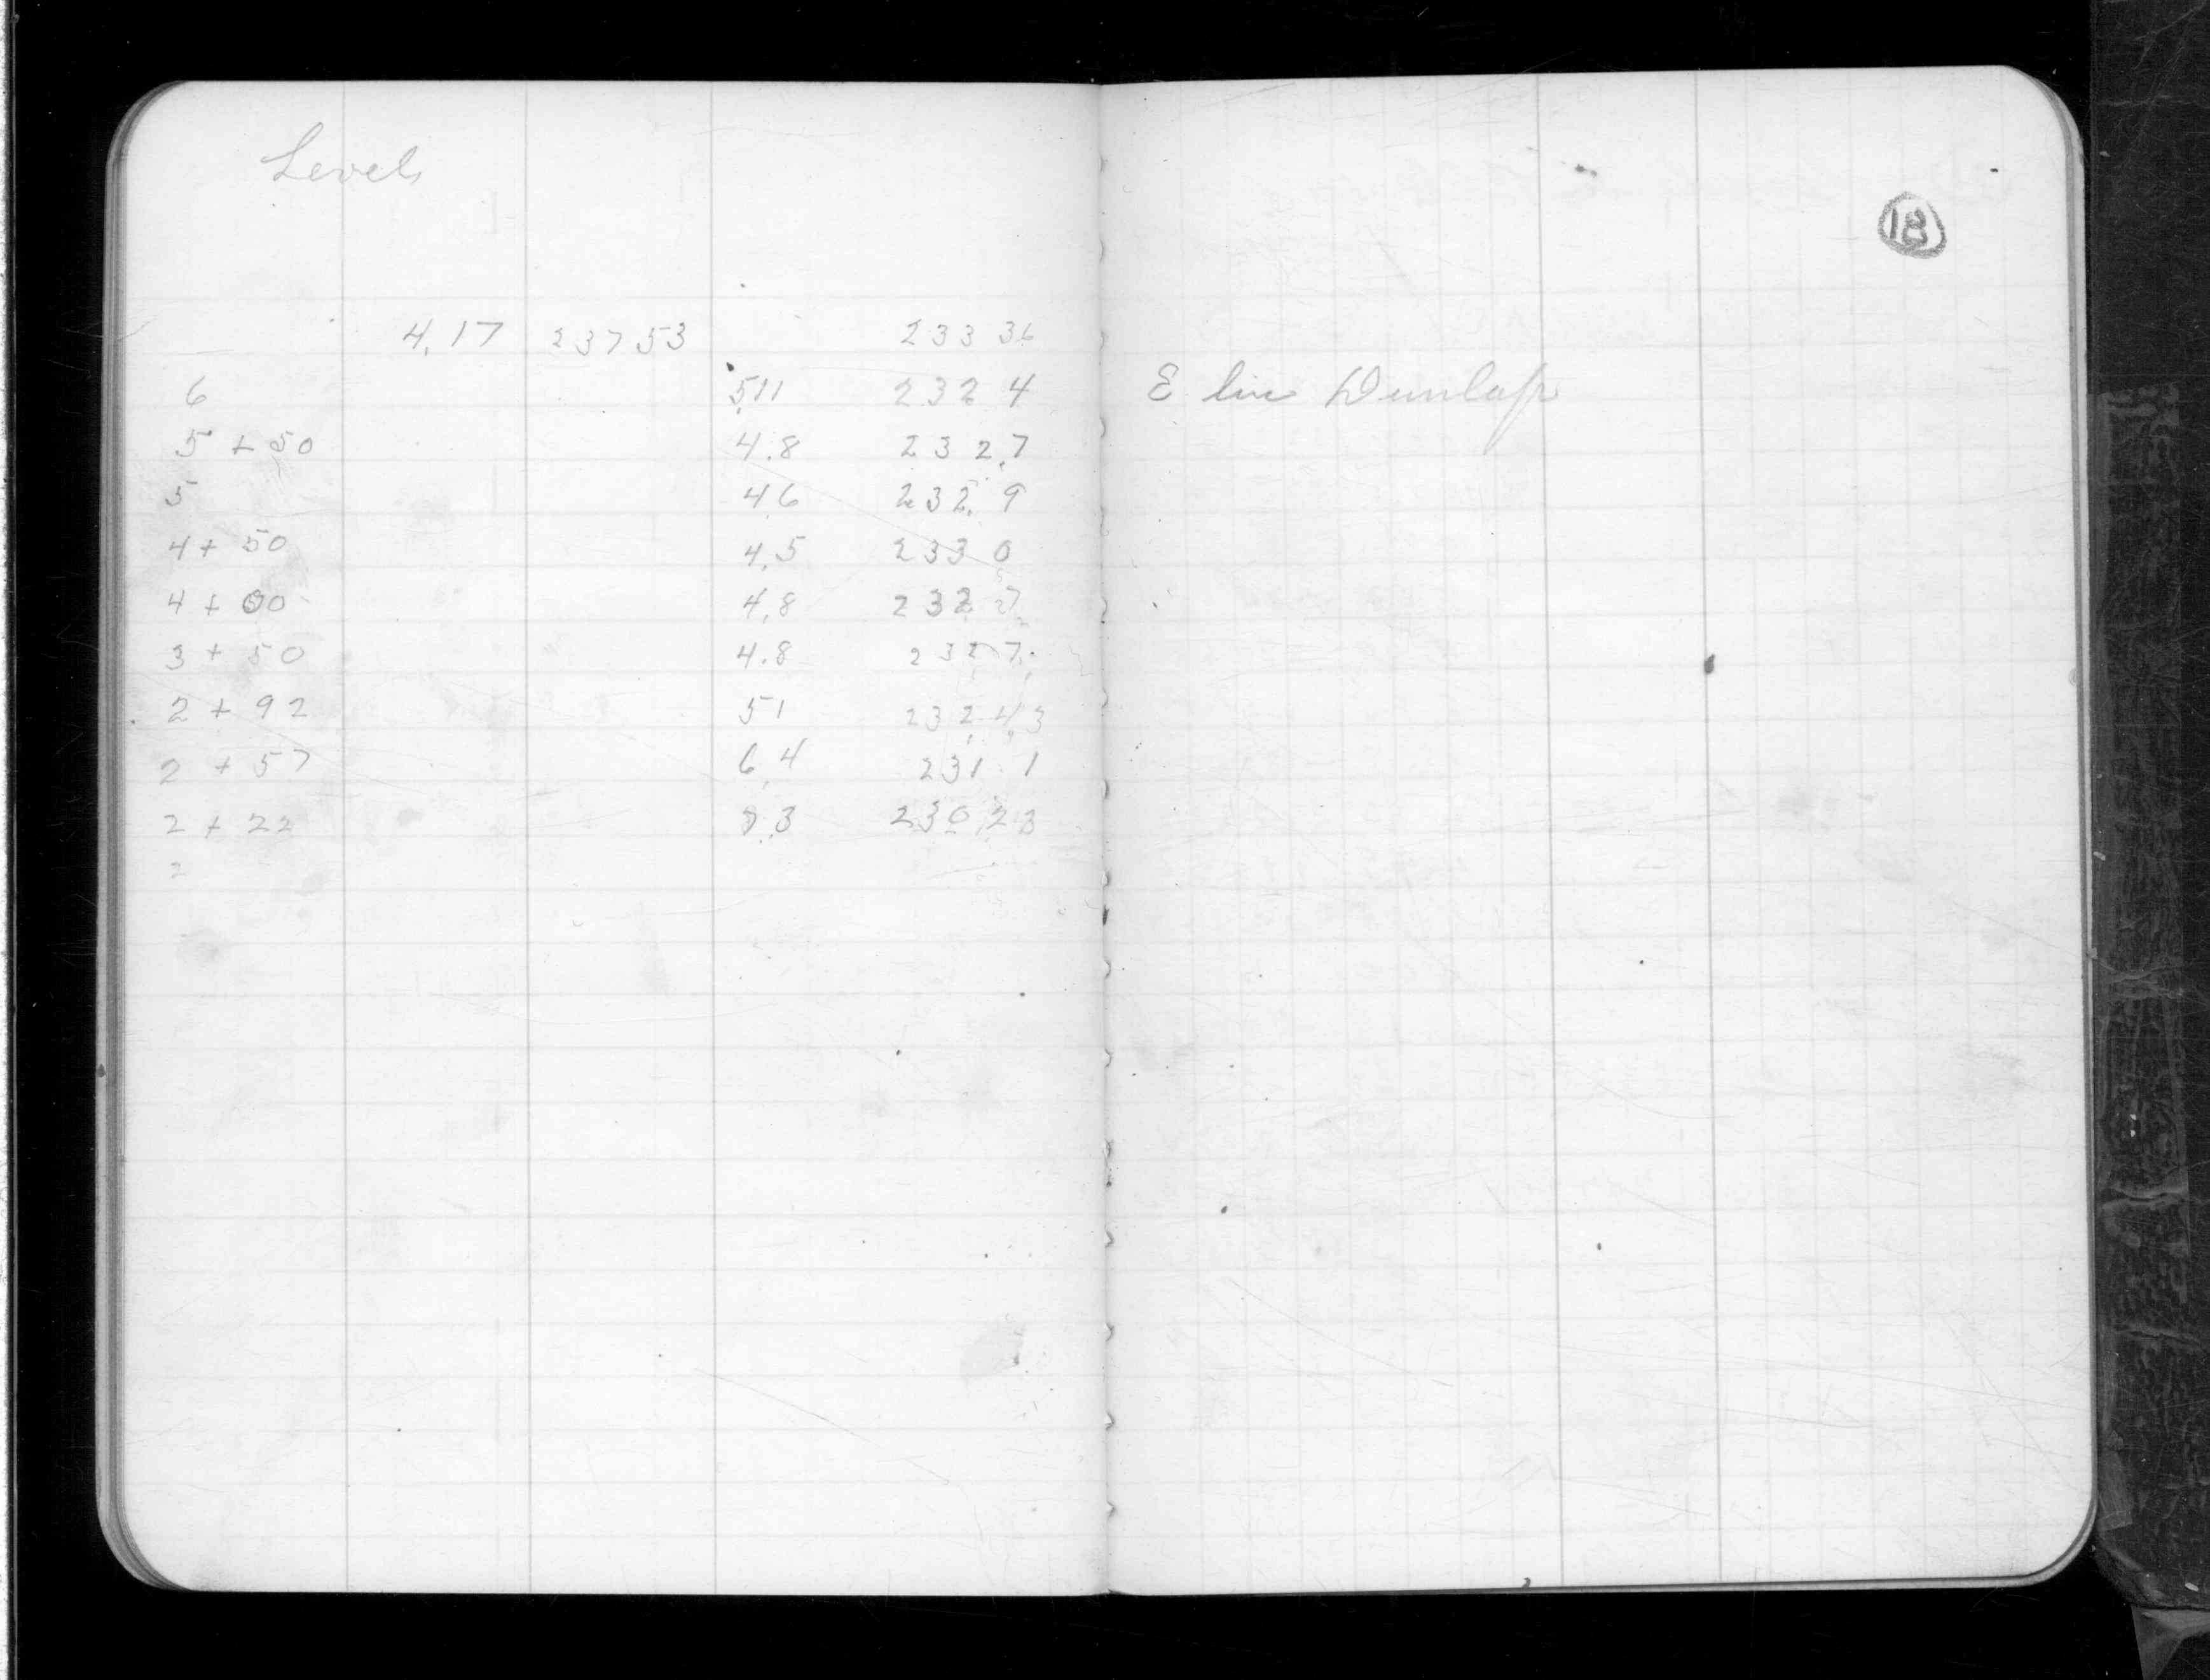 Levels
18
4.17 237 53 233 36
6 5.11 232 4 E line Dunlap
5 + 50 4.8 232.7
5 4.6 232.9
4 + 50 4.5 233 0
4 + 00 4.8 232 7
3 + 50 4.8 232 7
2 + 92 51 232.43
2 + 57 6.4 231.1
2 + 22 7.3 230.23
2